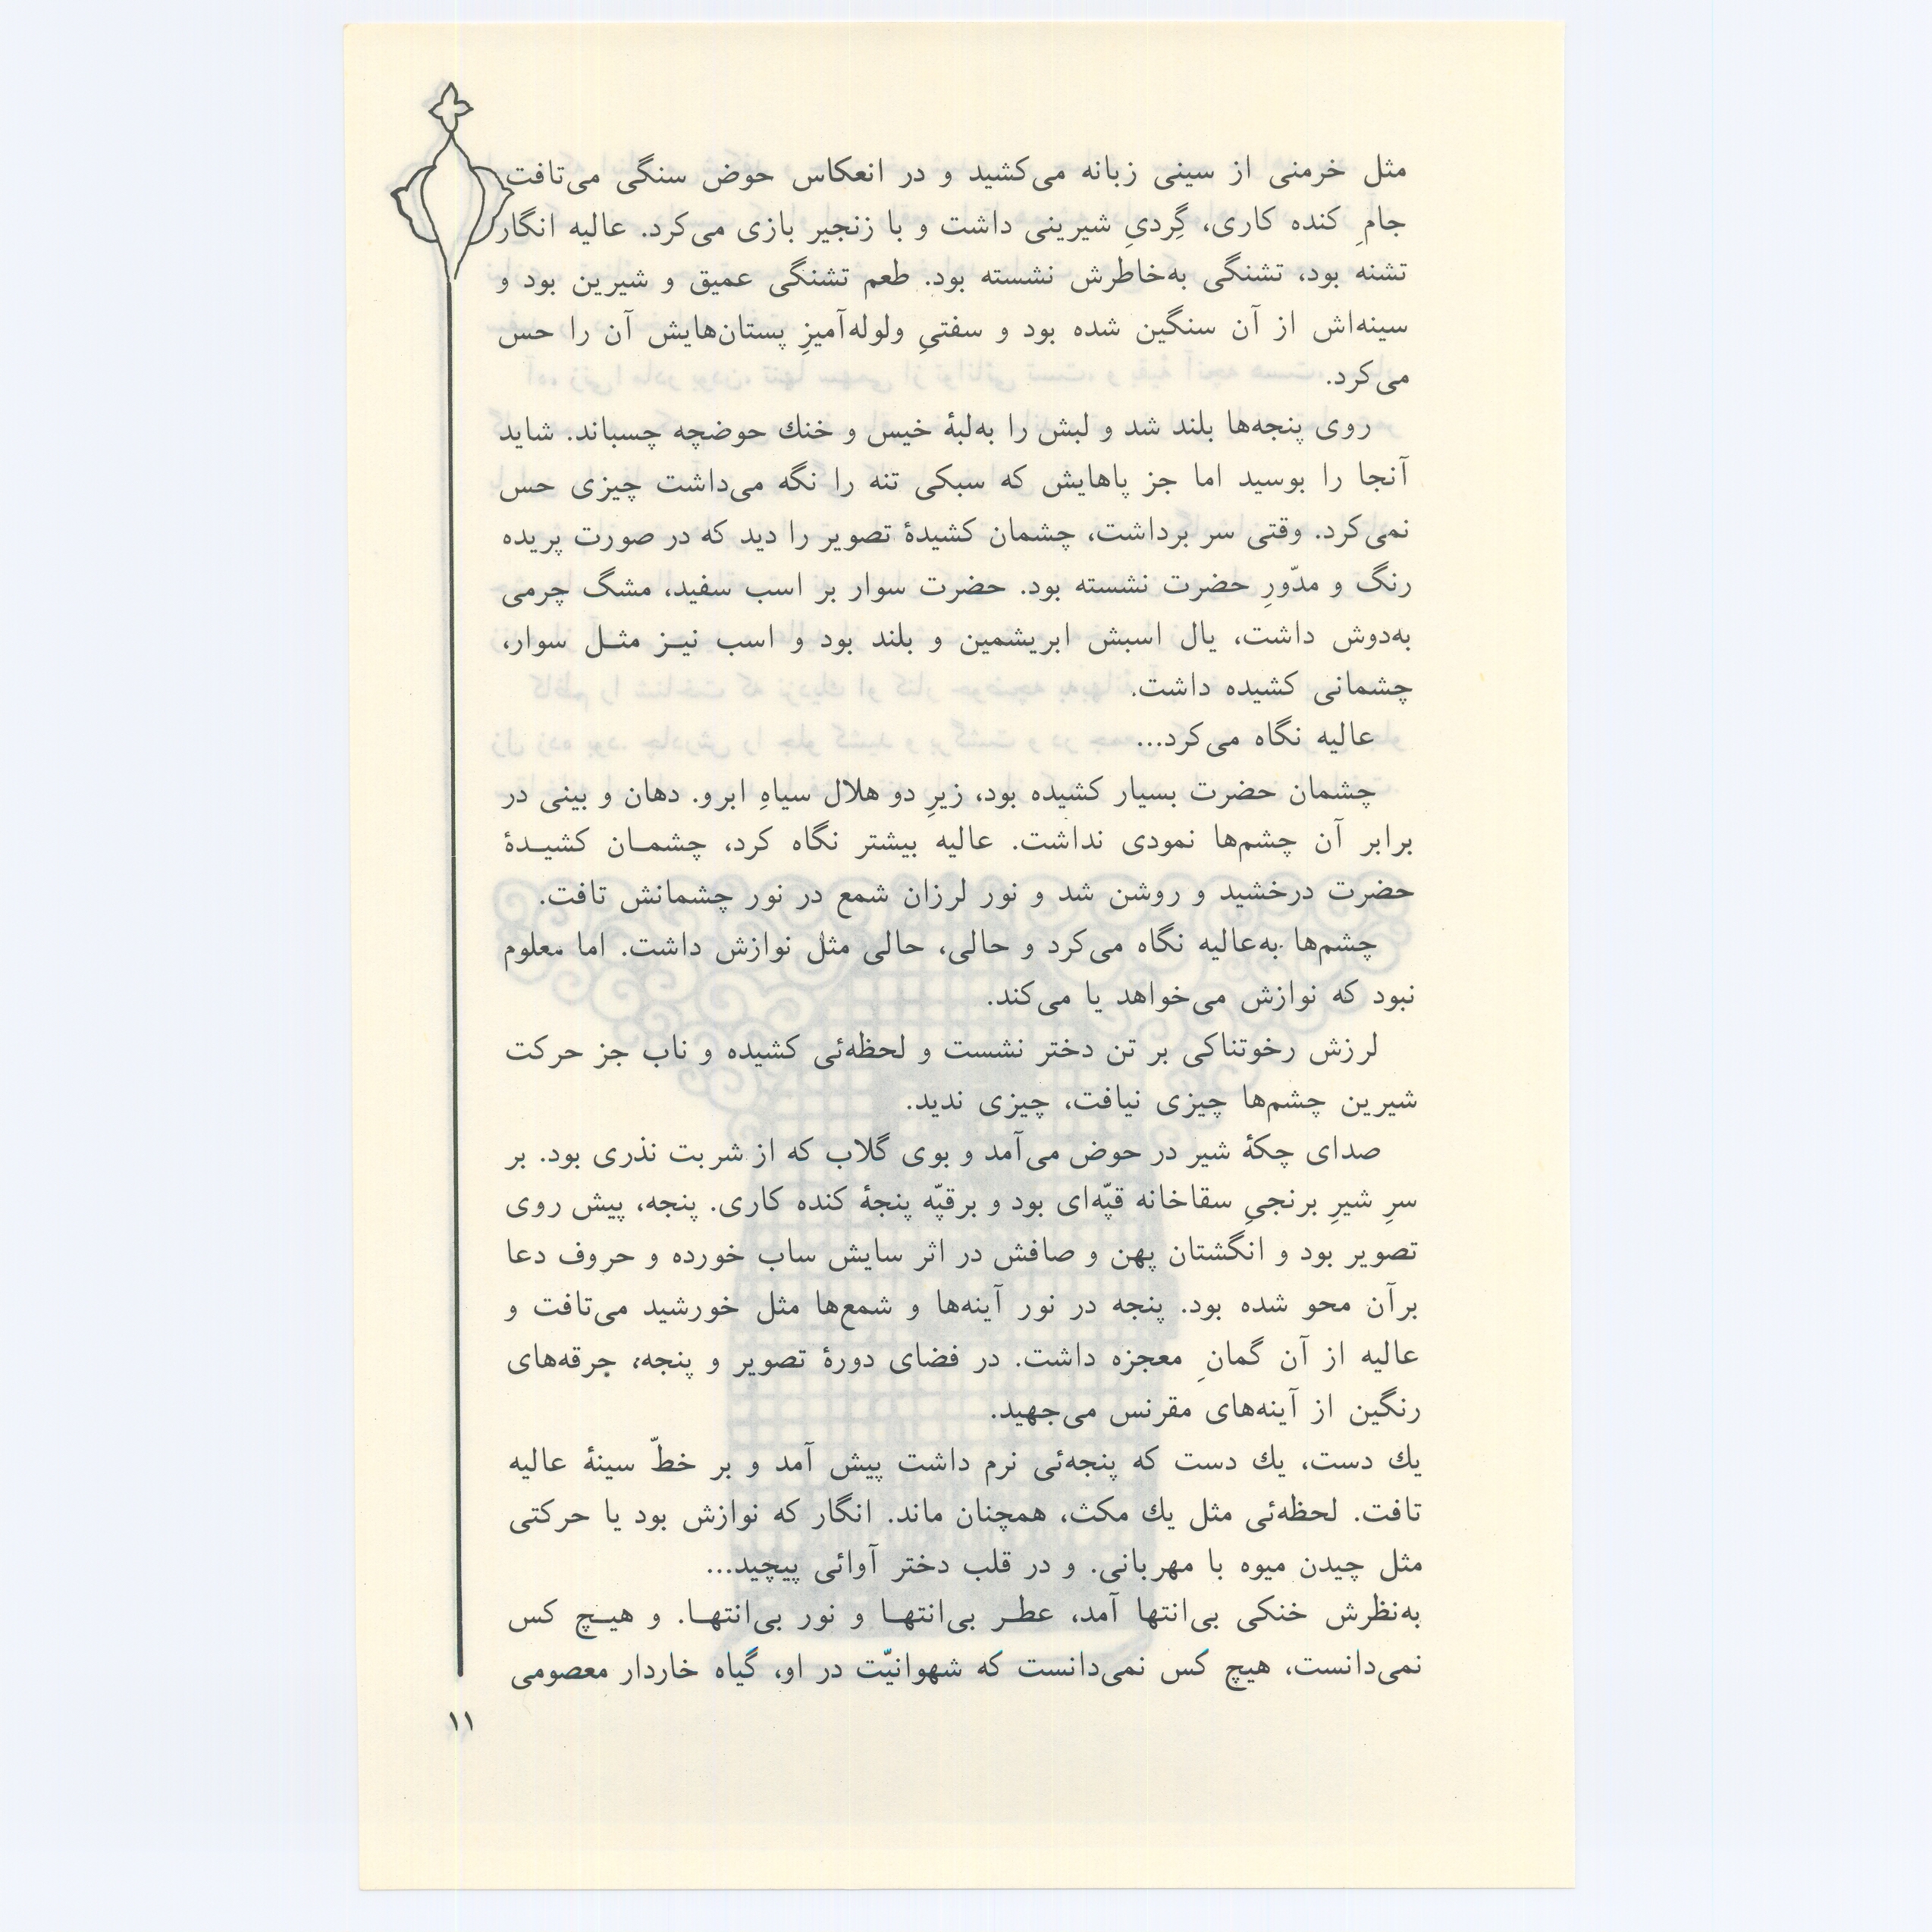 مثل خرمنی از سینی زبانه می‌کشید و در انعکاس حوض سنگی می‌تافت.
جامِ کنده کاری، گِردیِ شیرینی داشت و با زنجیر بازی می‌کرد. عالیه انگار
تشنه بود، تشنگی به‌خاطرش نشسته بود. طعم تشنگی عمیق و شیرین بود و
سینه‌اش از آن سنگین شده بود و سفتیِ ولوله‌آمیزِ پستان‌هایش آن را حس
می‌کرد.
روی پنجه‌ها بلند شد و لبش را به‌لبهٔ خیس و خنك حوضچه چسباند. شاید
آنجا را بوسید اما جز پاهایش که سبکی تنه را نگه می‌داشت چیزی حس
نمی‌کرد. وقتی سر برداشت، چشمان کشیدهٔ تصویر را دید که در صورت پریده
رنگ و مدّورِ حضرت نشسته بود. حضرت سوار بر اسب سفید، مشگ چرمی
به‌دوش داشت، یال اسبش ابریشمین و بلند بود و اسب نیـز مثـل سوار،
چشمانی کشیده داشت.
عالیه نگاه می‌کرد...
چشمان حضرت بسیار کشیده بود، زیرِ دو هلال سیاهِ ابرو. دهان و بینی در
برابر آن چشم‌ها نمودی نداشت. عالیه بیشتر نگاه کرد، چشمـان کشیـدهٔ
حضرت درخشید و روشن شد و نور لرزان شمع در نور چشمانش تافت.
چشم‌ها به‌عالیه نگاه می‌کرد و حالی، حالی مثل نوازش داشت. اما معلوم
نبود که نوازش می‌خواهد یا می‌کند.
لرزش رخوتناکی بر تن دختر نشست و لحظه‌ئی کشیده و ناب جز حرکت
شیرین چشم‌ها چیزی نیافت، چیزی ندید.
صدای چکهٔ شیر در حوض می‌آمد و بوی گلاب که از شربت نذری بود. بر
سرِ شیرِ برنجیِ سقاخانه قپّه‌ای بود و برقپّه پنجهٔ کنده کاری. پنجه، پیش روی
تصویر بود و انگشتان پهن و صافش در اثر سایش ساب خورده و حروف دعا
برآن محو شده بود. پنجه در نور آینه‌ها و شمع‌ها مثل خورشید می‌تافت و
عالیه از آن گمانِ معجزه داشت. در فضای دورهٔ تصویر و پنجه، جرقه‌های
رنگین از آینه‌های مقرنس می‌جهید.
یك دست، یك دست که پنجه‌ئی نرم داشت پیش آمد و بر خطّ سینهٔ عالیه
تافت. لحظه‌ئی مثل یك مکث، همچنان ماند. انگار که نوازش بود یا حرکتی
مثل چیدن میوه با مهربانی. و در قلب دختر آوائی پیچید...
به‌نظرش خنکی بی‌انتها آمد، عطـر بی‌انتهـا و نور بی‌انتهـا. و هیـچ کس
نمی‌دانست، هیچ کس نمی‌دانست که شهوانیّت در او، گیاه خاردار معصومی
۱۱